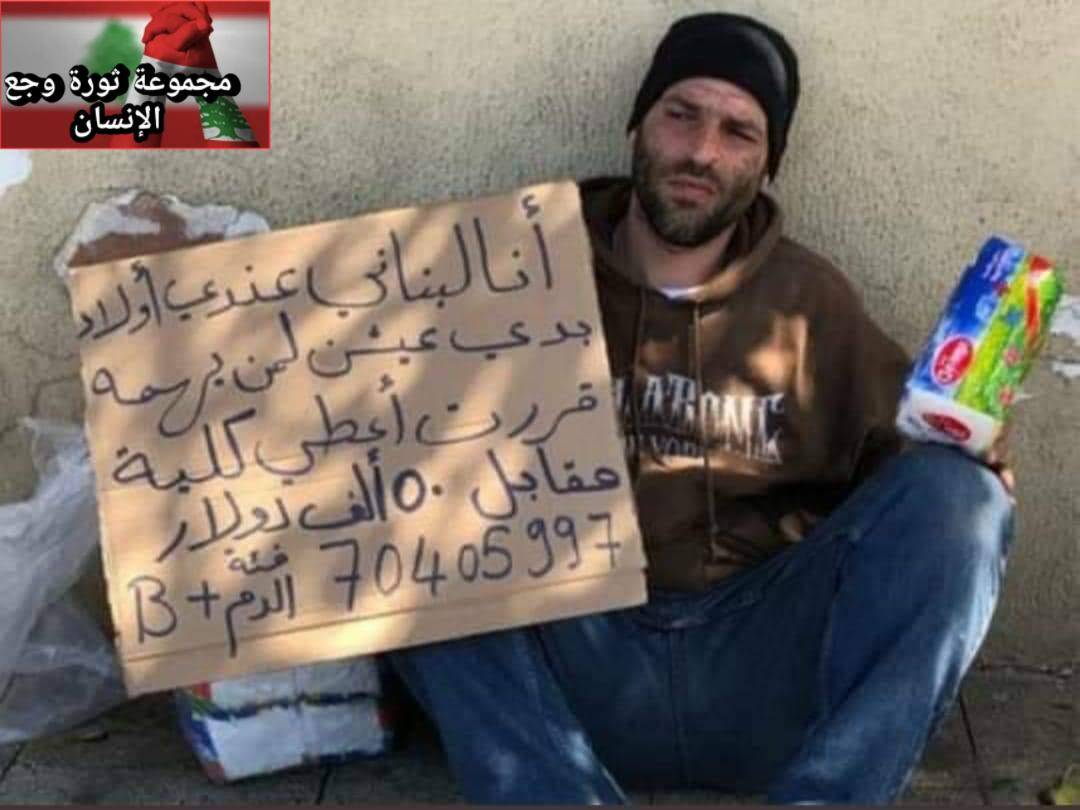 مجموعة ثورة وجع
الإنسان
أنا لبناني عندي أولاد
بدي عيشن لمن
قررت أعطي كلية
مقابل ٥٠ ألف دولار
70405997 فئة
الدم +B